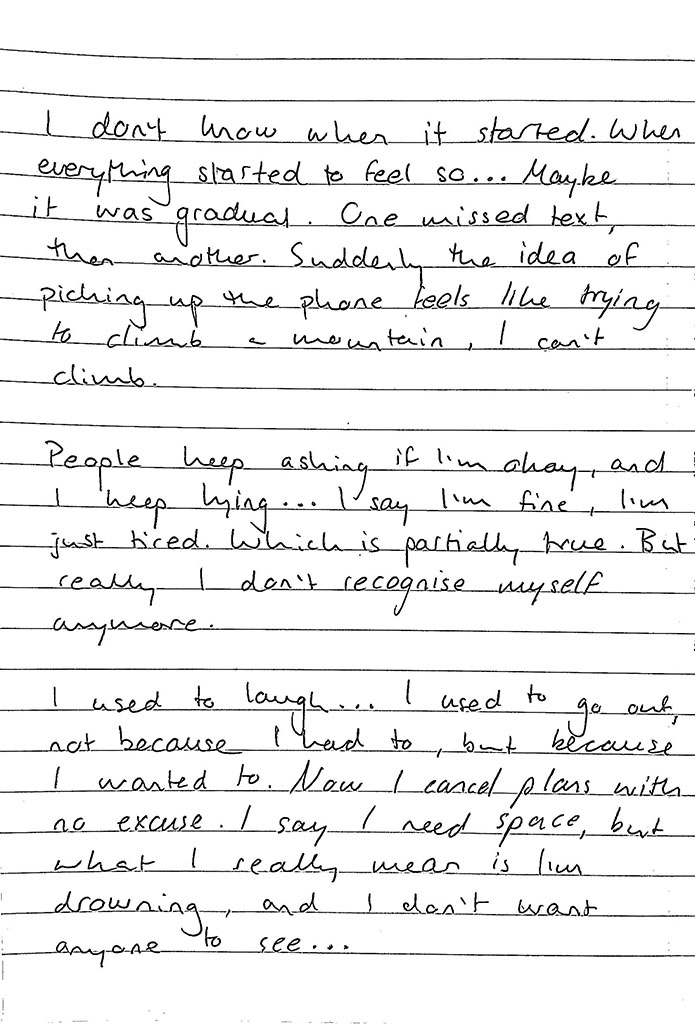 I don't know when it started. When
everything started to feel so... Maybe
it was gradual. One missed text,
then another. Suddenly the idea of
picking up the phone feels like trying
to climb a mountain, I can't
climb.
People keep asking if I'm okay, and
I keep lying... I say I'm fine, I'm
just tired. Which is partially true. But
really I don't recognise myself
anymore.
I used to laugh... I used to go out,
not because I had to, but because
I wanted to. Now I cancel plans with
no excuse. I say I need space, but
what I really mean is I'm
drowning, and I don't want
anyone to see...